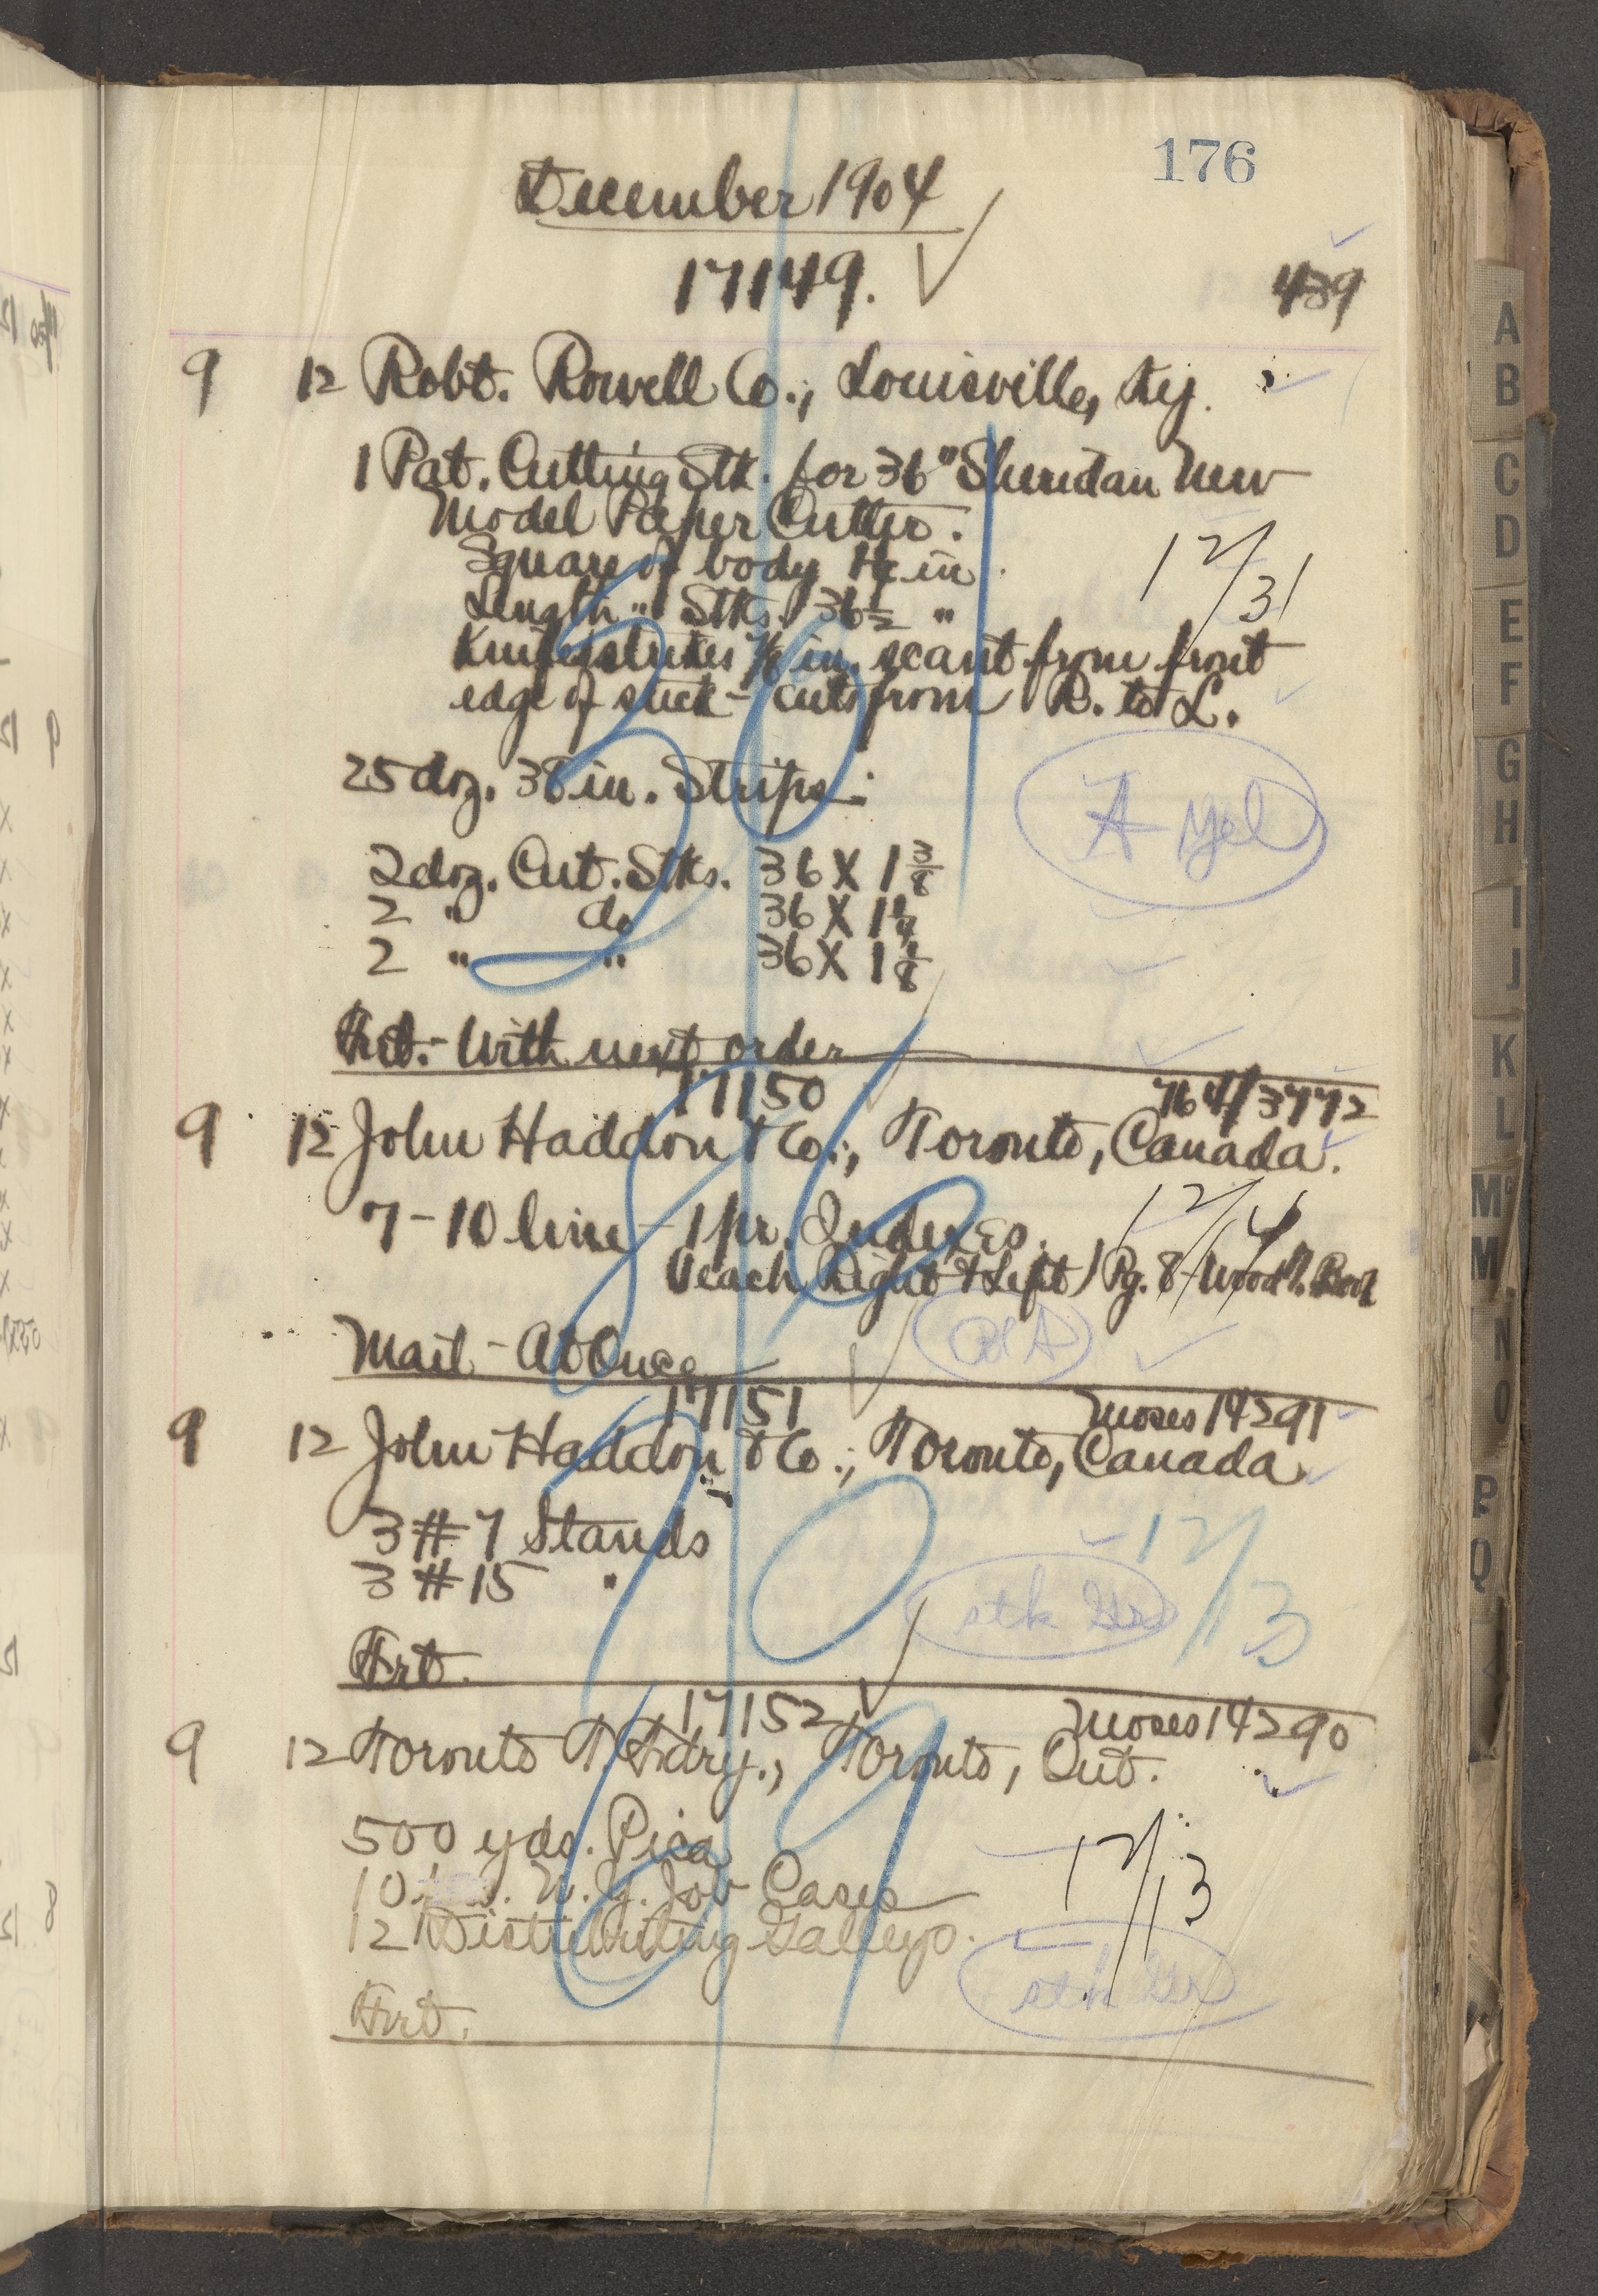 176
December 1904
17149.
439
9 12 Robt. Rowell Co., Louisville, Ky.
1 Pat. Cutting Stk. for 36" Sheridan New
Model Paper Cutter.
Square of body in.
Length " Stks. 36½ "
Knife strikes in. scant from front
edge of stick - cuts from R. to L.
12/31
25 doz. 36 in. Strips
A yel
2 doz. Cut. Stks. 36 X 1 3/8
2 " do 36 X 1 1/4
2 " " 36 X 1 1/8
Frt. - With next order
17150
764/3772
9 12 John Haddon & Co., Toronto, Canada.
7 - 10 line - 1 pr. Indexes.
12/14
(each Right & Left) Pg. 8 - Wood T.
Mail - At Once
17151
Moses 14291
9 12 John Haddon & Co., Toronto, Canada.
3 # 7 Stands
3 # 15 "
12/13
stk
Frt.
17152
Moses 14290
9 12 Toronto T. Fdry., Toronto, Ont.
500 yds. Pica
10 N. Y. Job Cases
12 Distributing Galleys.
12/13
stk
Frt.
A
B
C
D
E
F
G
H
I
J
K
L
M
M
N
O
P
Q